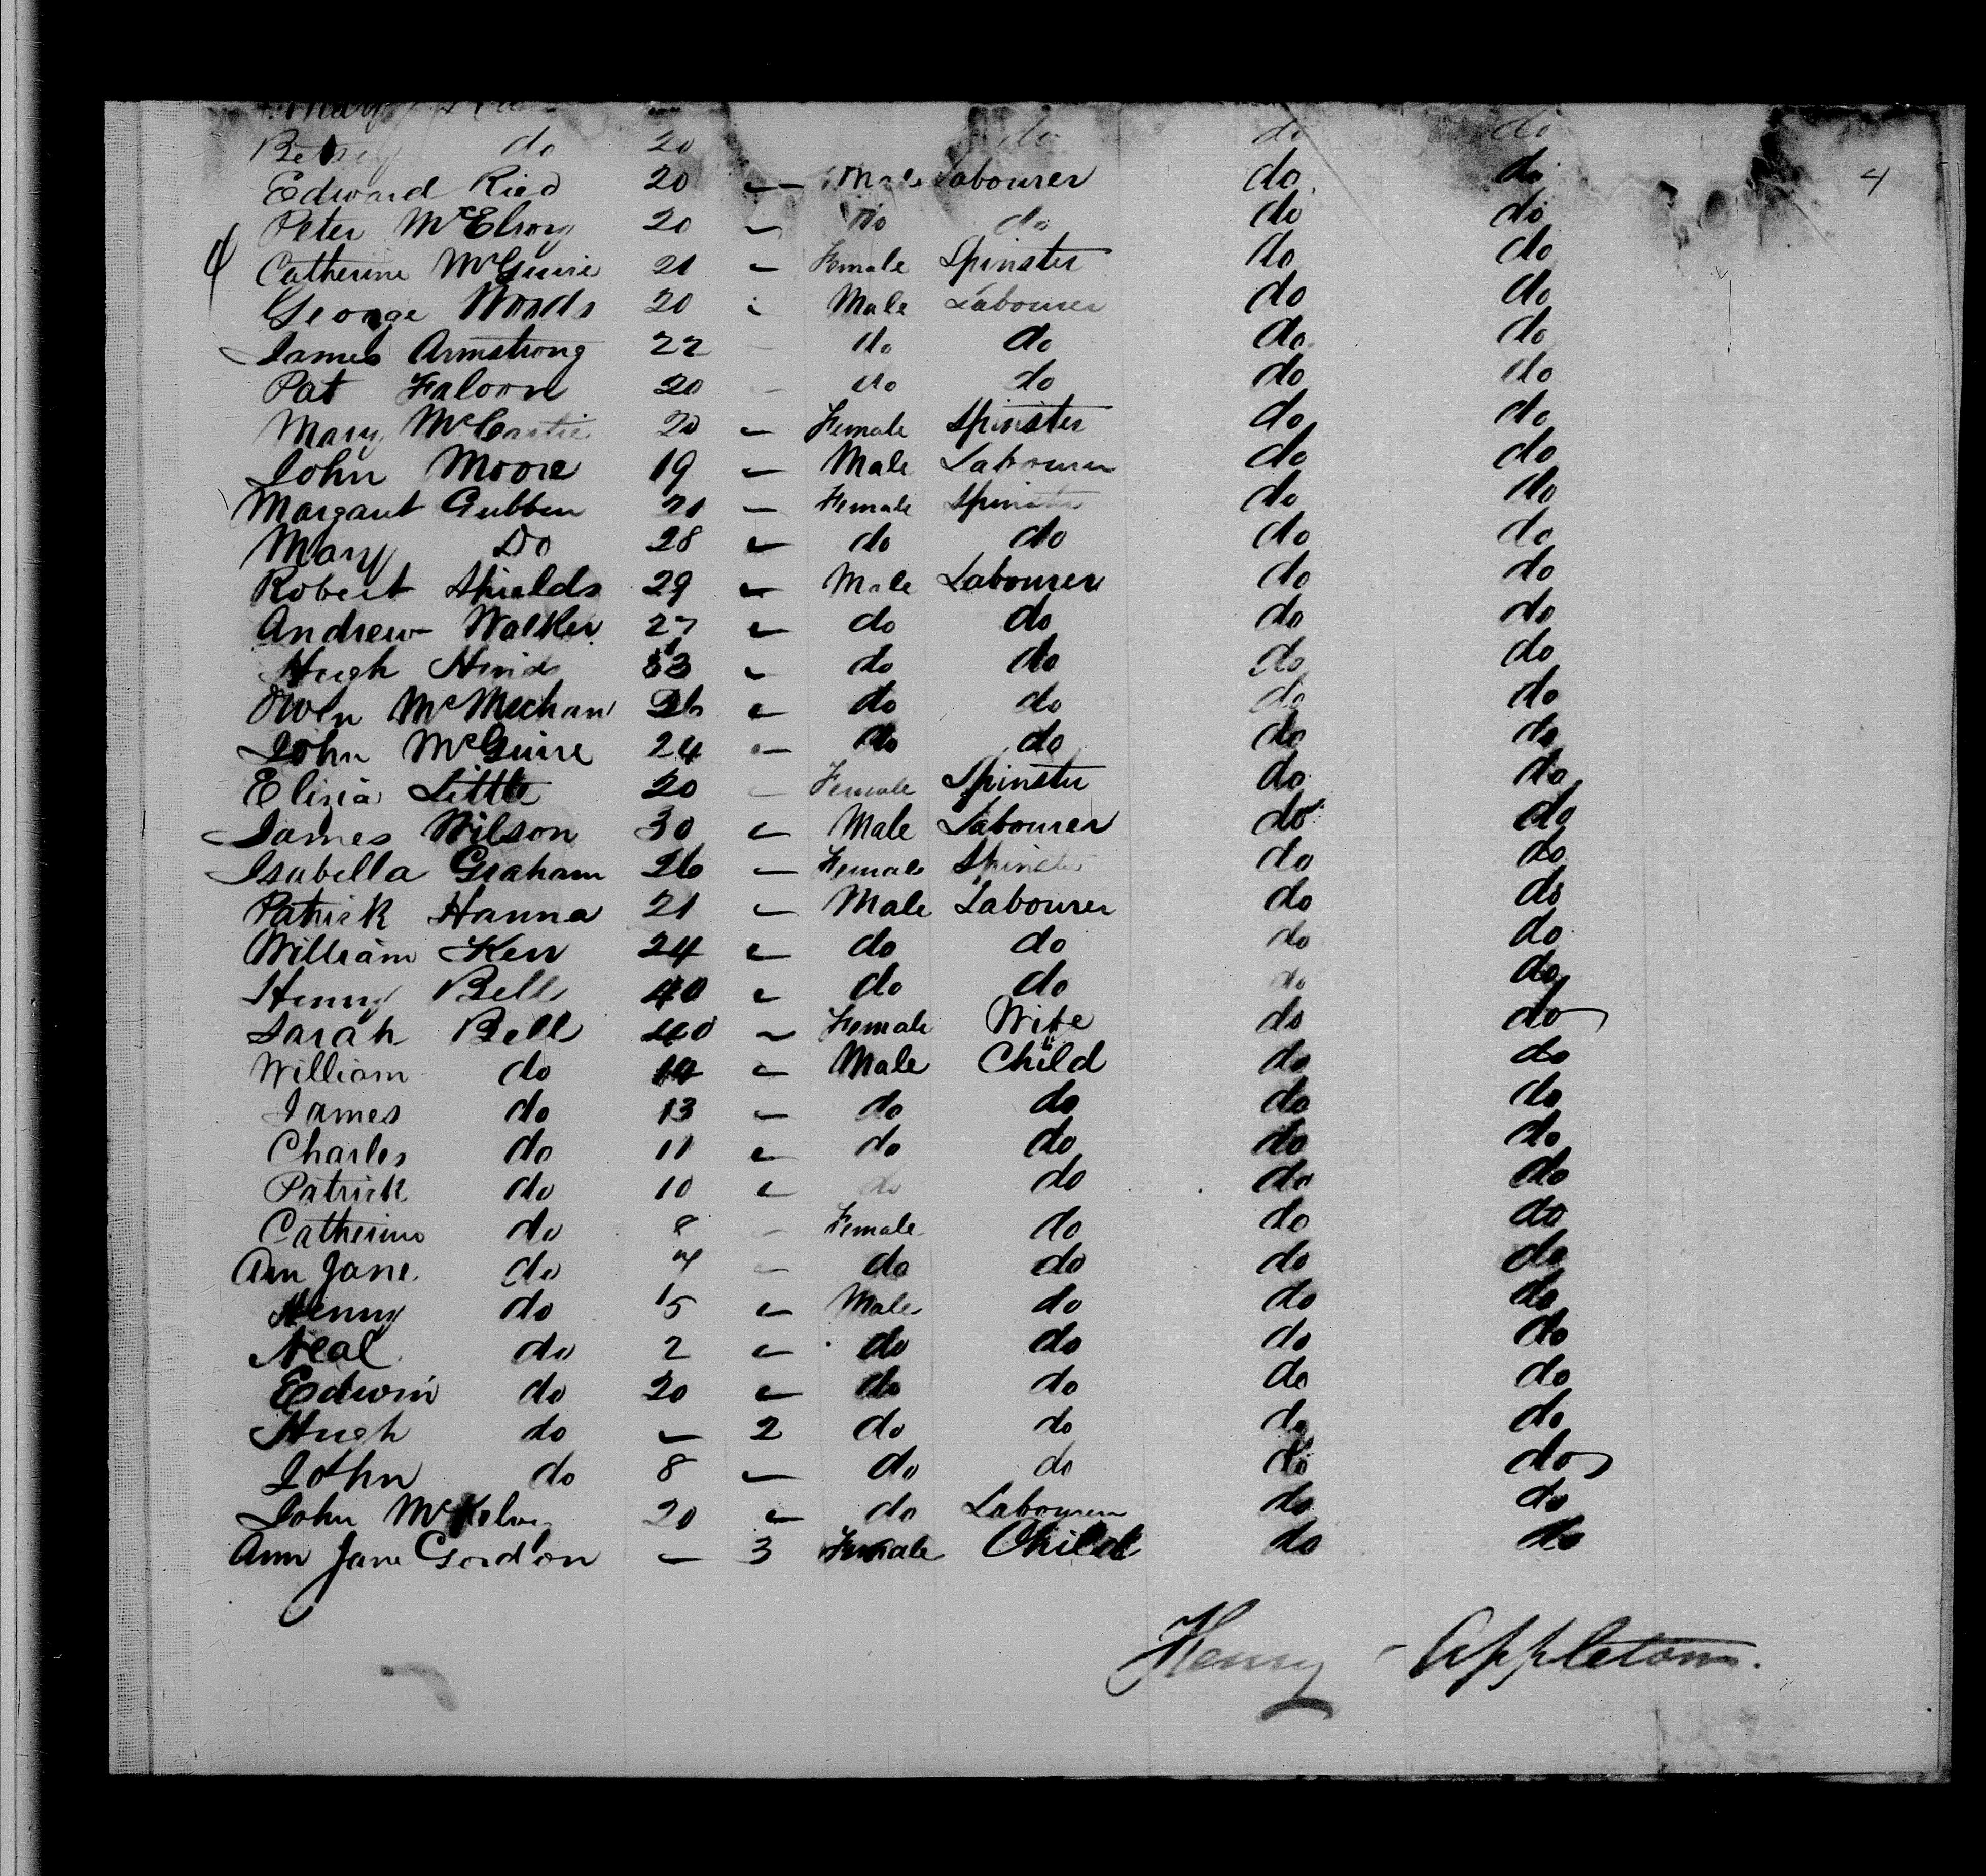 Betsey do 20 do do do
Edward Ried 20 — Male Labourer do do 4
Peter McElroy 20 — do do do do
Catherine McGuire 21 — Female Spinster do do
George Woods 20 — Male Labourer do do
James Armstrong 22 — do do do do
Pat Faloon 20 — do do do do
Mary McCartie 20 — Female Spinster do do
John Moore 19 — Male Labourer do do
Margaret Gubben 21 — Female Spinster do do
Mary Do 28 — do do do do
Robert Shields 29 — Male Labourer do do
Andrew Walker 27 — do do do do
Hugh Hinds — do do do do
Owen McMechan 26 — do do do do
John McGuire 24 — do do do do
Eliza Little 20 — Female Spinster do do
James Wilson 30 — Male Labourer do do
Isabella Graham 26 — Female Spinster do do
Patrick Hanna 21 — Male Labourer do do
William Kerr 24 — do do do do
Henry Bell 40 — do do do do
Sarah Bell 40 — Female Wife do do
William do — Male Child do do
James do 13 — do do do do
Charles do 11 — do do do do
Patrick do 10 — do do do do
Catherine do 8 — Female do do do
Ann Jane do 7 — do do do do
Henry do 5 — Male do do do
Neal do 2 — do do do do
Edwin do 20 — do do do do
Hugh do — 2 do do do do
John do 8 — do do do do
John McKelvey 20 — do Labourer do do
Ann Jane Gordon — 3 Female Child do do
Henry Appleton.